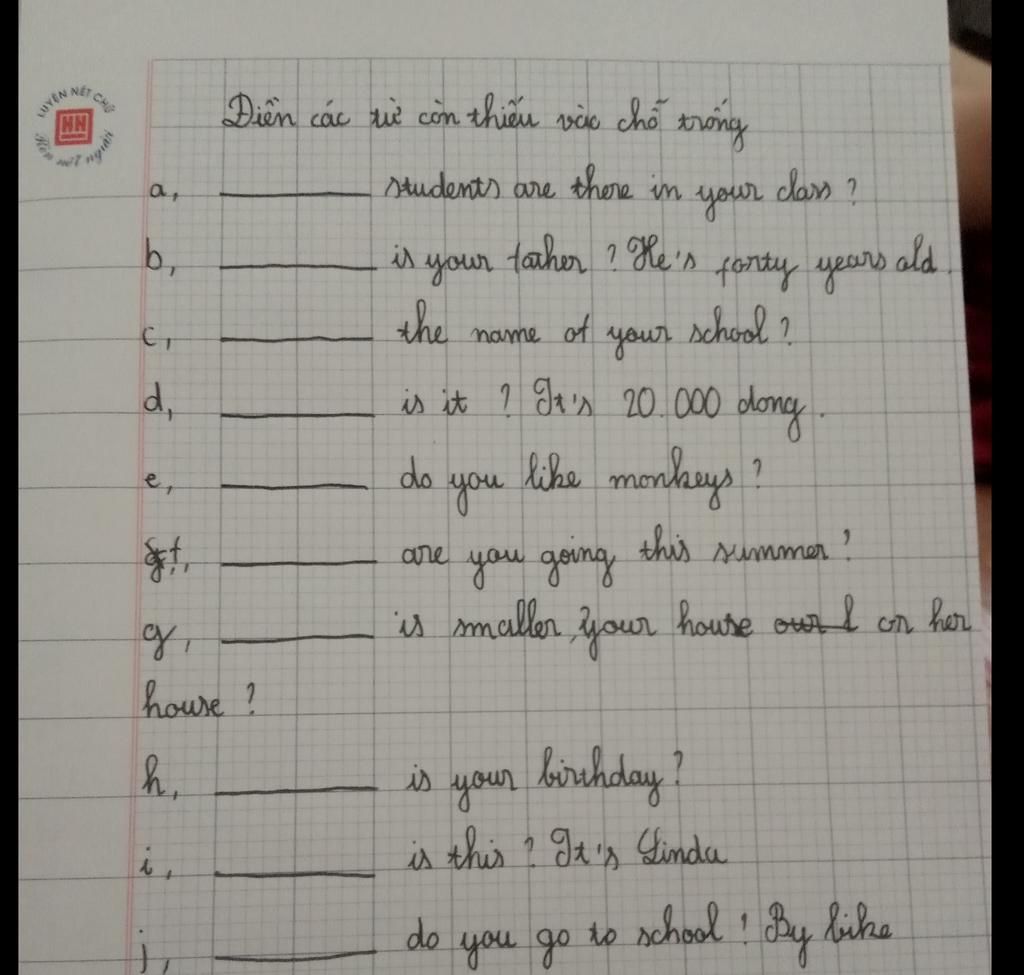 LUYỆN NÉT CHỮ
HH
Rèn nét người
Điền các từ còn thiếu vào chỗ trống
a, ________ students are there in your class ?
b, ________ is your father ? He's forty years old.
c, ________ the name of your school ?
d, ________ is it ? It's 20.000 dong.
e, ________ do you like monkeys ?
f, ________ are you going this summer ?
g, ________ is smaller, your house or her
house ?
h, ________ is your birthday ?
i, ________ is this ? It's Linda
j, ________ do you go to school ? By bike